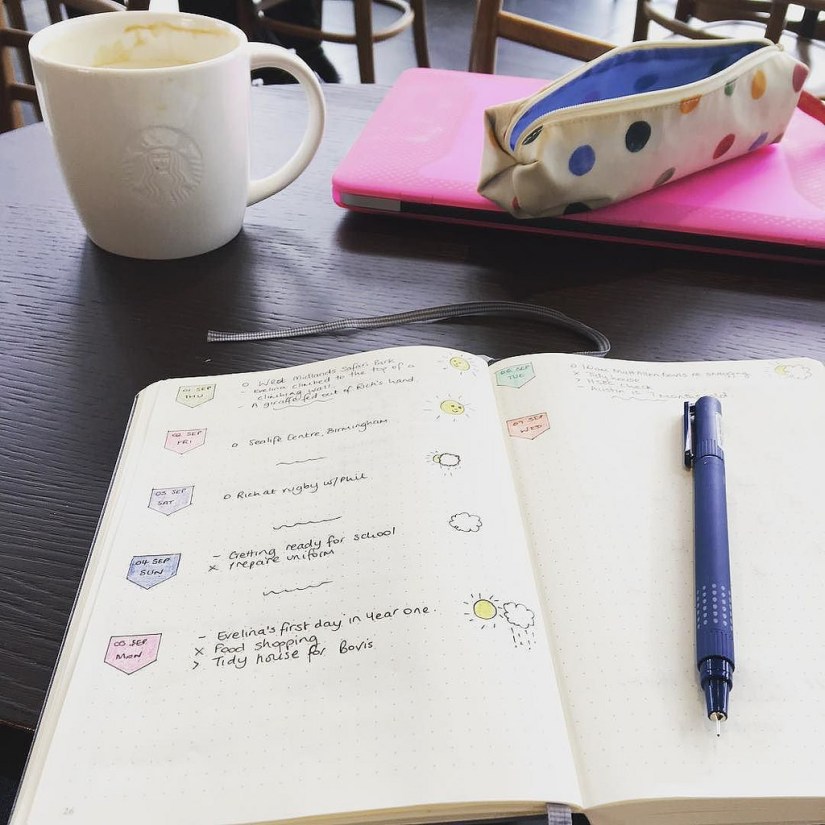 01 SEP
THU
o West Midlands Safari Park
- Evelina climbed to the top of a
climbing wall
- A giraffe fed out of Rich's hand.
02 SEP
FRI
o Sealife Centre, Birmingham
03 SEP
SAT
o Rich at rugby w/ Phil
04 SEP
SUN
- Getting ready for school
x Prepare uniform
05 SEP
MON
- Evelina's first day in Year one.
x Food shopping
> Tidy house for Bovis
26
06 SEP
TUE
x Tidy house
07 SEP
WED